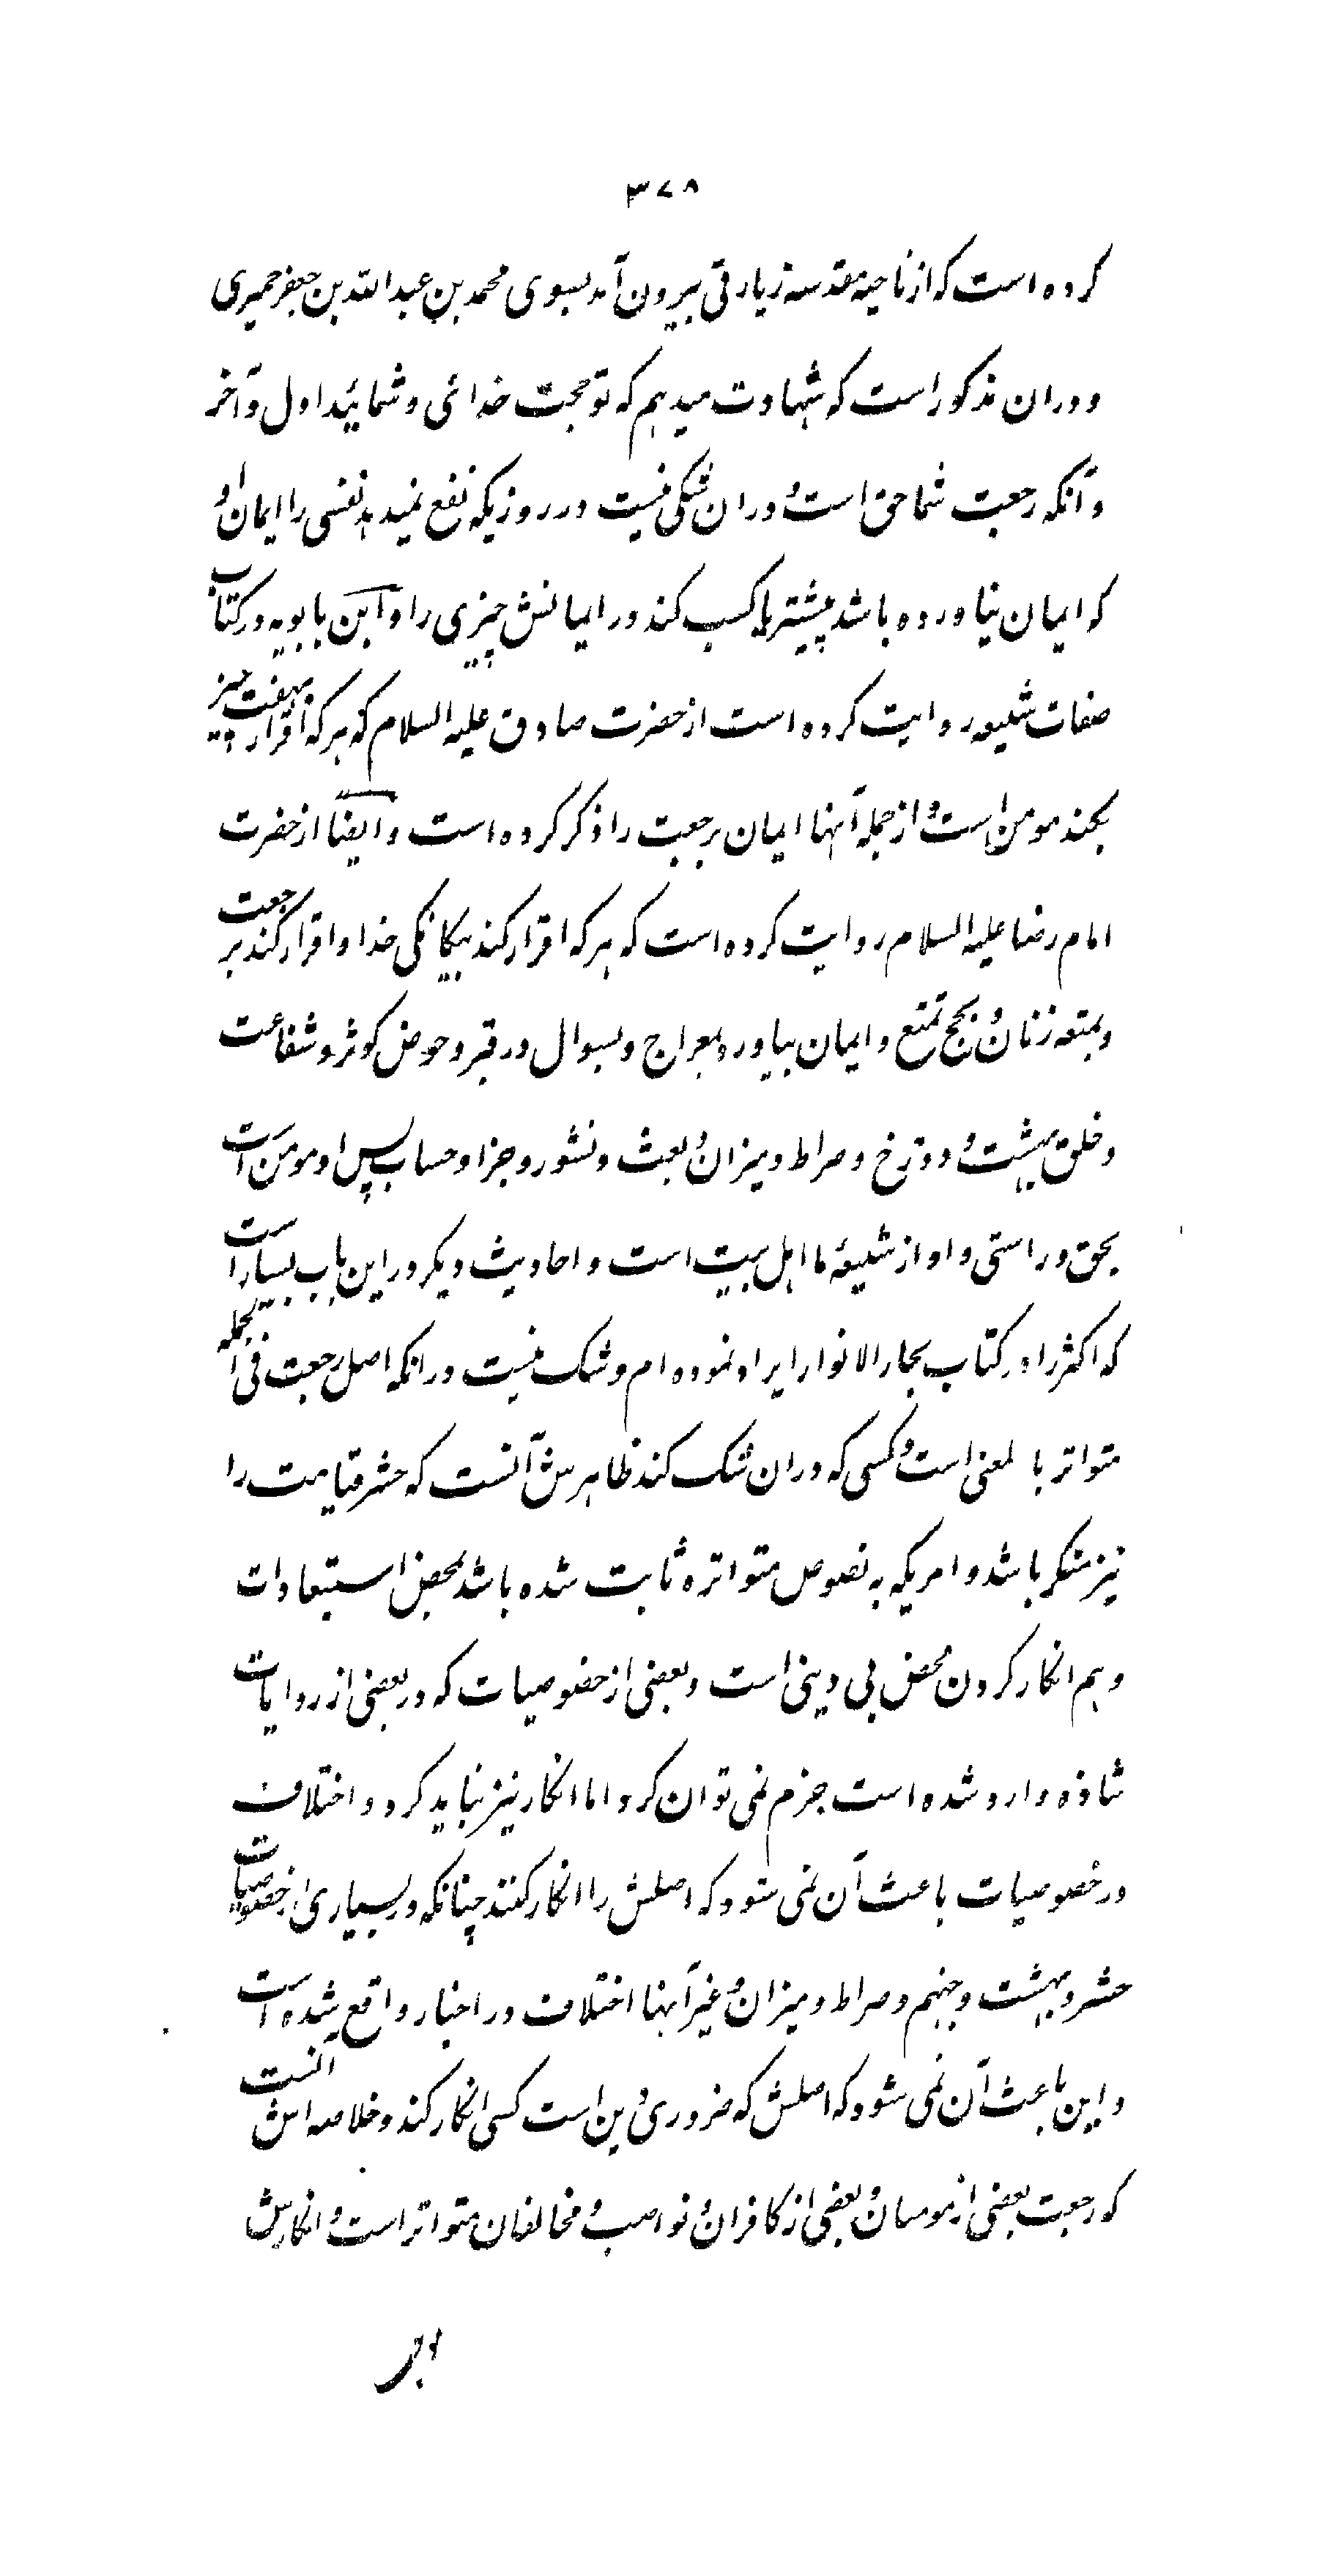 ۳۷۸
کرده است که از ناحیه مقدسه زیارتی بیرون آمد بسوی محمد بن عبدالله بن جعفر حمیری
و دران مذکور است که شهادت میدهم که تو حجت خدائی و شمائید اول و آخر
و آنکه رجعت شما حق است و دران شکی نیست در روزیکه نفع نمیدهد نفسی را ایمان او
که ایمان نیاورده باشد پیشتر یا کسب کند در ایمانش چیزی را و ابن بابویه در کتاب
صفات شیعه روایت کرده است از حضرت صادق علیه السلام که هر که اقرار بهفت چیز
بکند مومن است و از جمله آنها ایمان برجعت را ذکر کرده است و ایضا از حضرت
امام رضا علیه السلام روایت کرده است که هر که اقرار کند بیگانگی خدا و اقرار کند برجعت
و بمتعه زنان و بحج تمتع و ایمان بیاورد بمعراج و بسوال در قبر و حوض کوثر و شفاعت
و خلق بهشت و دوزخ و صراط و میزان و بعث و نشور و جزا و حساب پس او مومن است
بحق و راستی و او از شیعهٔ ما اهل بیت است و احادیث دیگر در این باب بسیار است
که اکثر را در کتاب بحار الانوار ایراد نموده ام و شک نیست در انکه اصل رجعت فی الجمله
متواتر بالمعنی است و کسی که دران شک کند ظاهرش آنست که حشر قیامت را
نیز منکر باشد و امریکه به نصوص متواتره ثابت شده باشد بمحض استبعادات
وهم انکار کردن محض بی دینی است و بعضی از خصوصیات که در بعضی از روایات
شاذه وارد شده است جزم نمی توان کرد و اما انکار نیز نباید کرد و اختلاف
در خصوصیات باعث آن نمی شود که اصلش را انکار کنند چنانکه در بسیاری از خصوصیات
حشر و بهشت و جهنم و صراط و میزان و غیر آنها اختلاف در اخبار واقع شده است
و این باعث آن نمی شود که اصلش که ضروری دین است کسی انکار کند و خلاصه اش آنست
که رجعت بعضی از مومنان و بعضی از کافران و نواصب و مخالفان متواتر است و انکارش